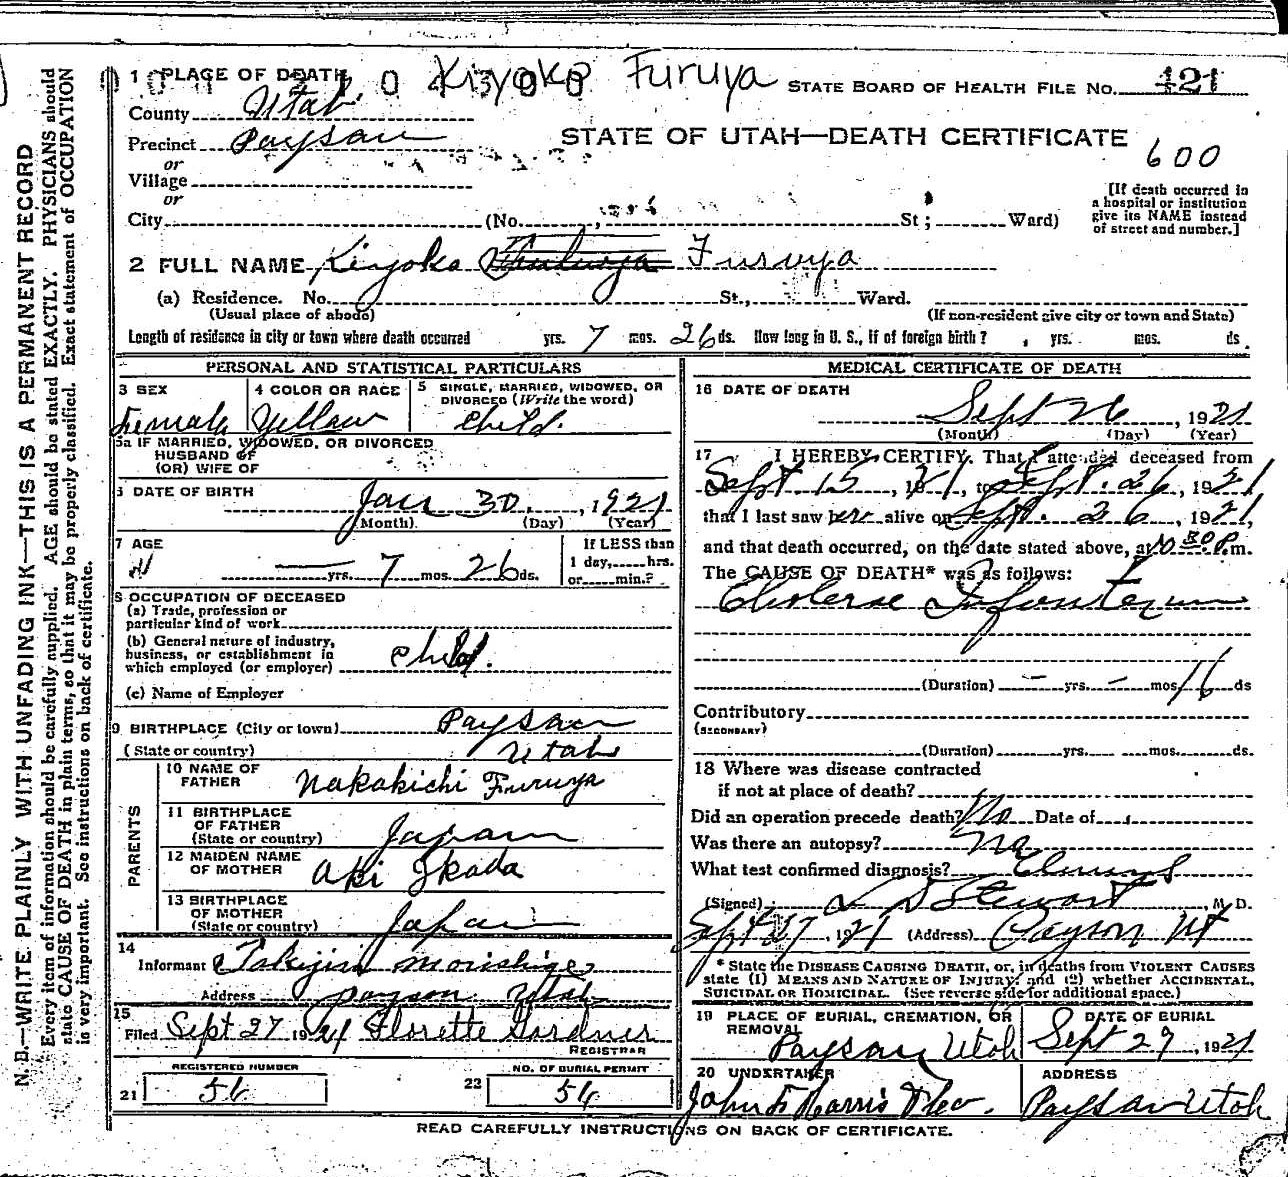 1 PLACE OF DEATH
Kiyoko Furuya
STATE BOARD OF HEALTH FILE NO. 421
County Utah
STATE OF UTAH—DEATH CERTIFICATE
Precinct Payson
600
or
Village
or
[If death occurred in
a hospital or institution
give its NAME instead
of street and number.]
City (No. St; Ward)
2 FULL NAME Kiyoko Furuya
(a) Residence. No. St., Ward.
(Usual place of abode) (If non-resident give city or town and State)
Length of residence in city or town where death occurred yrs. 7 mos. 26 ds. How long in U. S., if of foreign birth? yrs. mos. ds.
PERSONAL AND STATISTICAL PARTICULARS
3 SEX 4 COLOR OR RACE 5 SINGLE, MARRIED, WIDOWED, OR
DIVORCED (Write the word)
Female Yellow Child.
5a IF MARRIED, WIDOWED, OR DIVORCED
HUSBAND OF
(OR) WIFE OF
6 DATE OF BIRTH Jan 30, 1921
(Month) (Day) (Year)
7 AGE If LESS than
1 day, hrs.
— yrs. 7 mos. 26 ds. or min.?
8 OCCUPATION OF DECEASED
(a) Trade, profession or
particular kind of work
(b) General nature of industry,
business, or establishment in
which employed (or employer) Child.
(c) Name of Employer
9 BIRTHPLACE (City or town) Payson
(State or country) Utah
PARENTS
10 NAME OF
FATHER Nakakichi Furuya
11 BIRTHPLACE
OF FATHER
(State or country) Japan
12 MAIDEN NAME
OF MOTHER Aki Ikada
13 BIRTHPLACE
OF MOTHER
(State or country) Japan
14
Informant Takijiri Morishige
Address Payson Utah
15
Filed Sept 27 1921 Florette Gardner
REGISTRAR
REGISTERED NUMBER NO. OF BURIAL PERMIT
21 56 22 54
MEDICAL CERTIFICATE OF DEATH
16 DATE OF DEATH
Sept 26, 1921
(Month) (Day) (Year)
17 I HEREBY CERTIFY, That I attended deceased from
Sept 15, 1921, to Sept. 26, 1921
that I last saw her alive on Sept. 26, 1921,
and that death occurred, on the date stated above, at 10:30 P.m.
The CAUSE OF DEATH* was as follows:
Cholerae Infantum
(Duration) — yrs. — mos. 16 ds
Contributory
(SECONDARY)
(Duration) yrs. mos. ds.
18 Where was disease contracted
if not at place of death?
Did an operation precede death? No Date of
Was there an autopsy? No
What test confirmed diagnosis?
(Signed) L D Stewart, M. D.
Sept 27, 1921 (Address) Payson Ut
* State the DISEASE CAUSING DEATH, or, in deaths from VIOLENT CAUSES
state (1) MEANS AND NATURE OF INJURY; and (2) whether ACCIDENTAL,
SUICIDAL OR HOMICIDAL. (See reverse side for additional space.)
19 PLACE OF BURIAL, CREMATION, OR
REMOVAL
DATE OF BURIAL
Payson Utah Sept 27, 1921
20 UNDERTAKER ADDRESS
John F Harris Payson Utah
READ CAREFULLY INSTRUCTIONS ON BACK OF CERTIFICATE.
N. B.—WRITE PLAINLY WITH UNFADING INK—THIS IS A PERMANENT RECORD
Every item of information should be carefully supplied. AGE should be stated EXACTLY. PHYSICIANS should
state CAUSE OF DEATH in plain terms, so that it may be properly classified. Exact statement of OCCUPATION
is very important. See instructions on back of certificate.